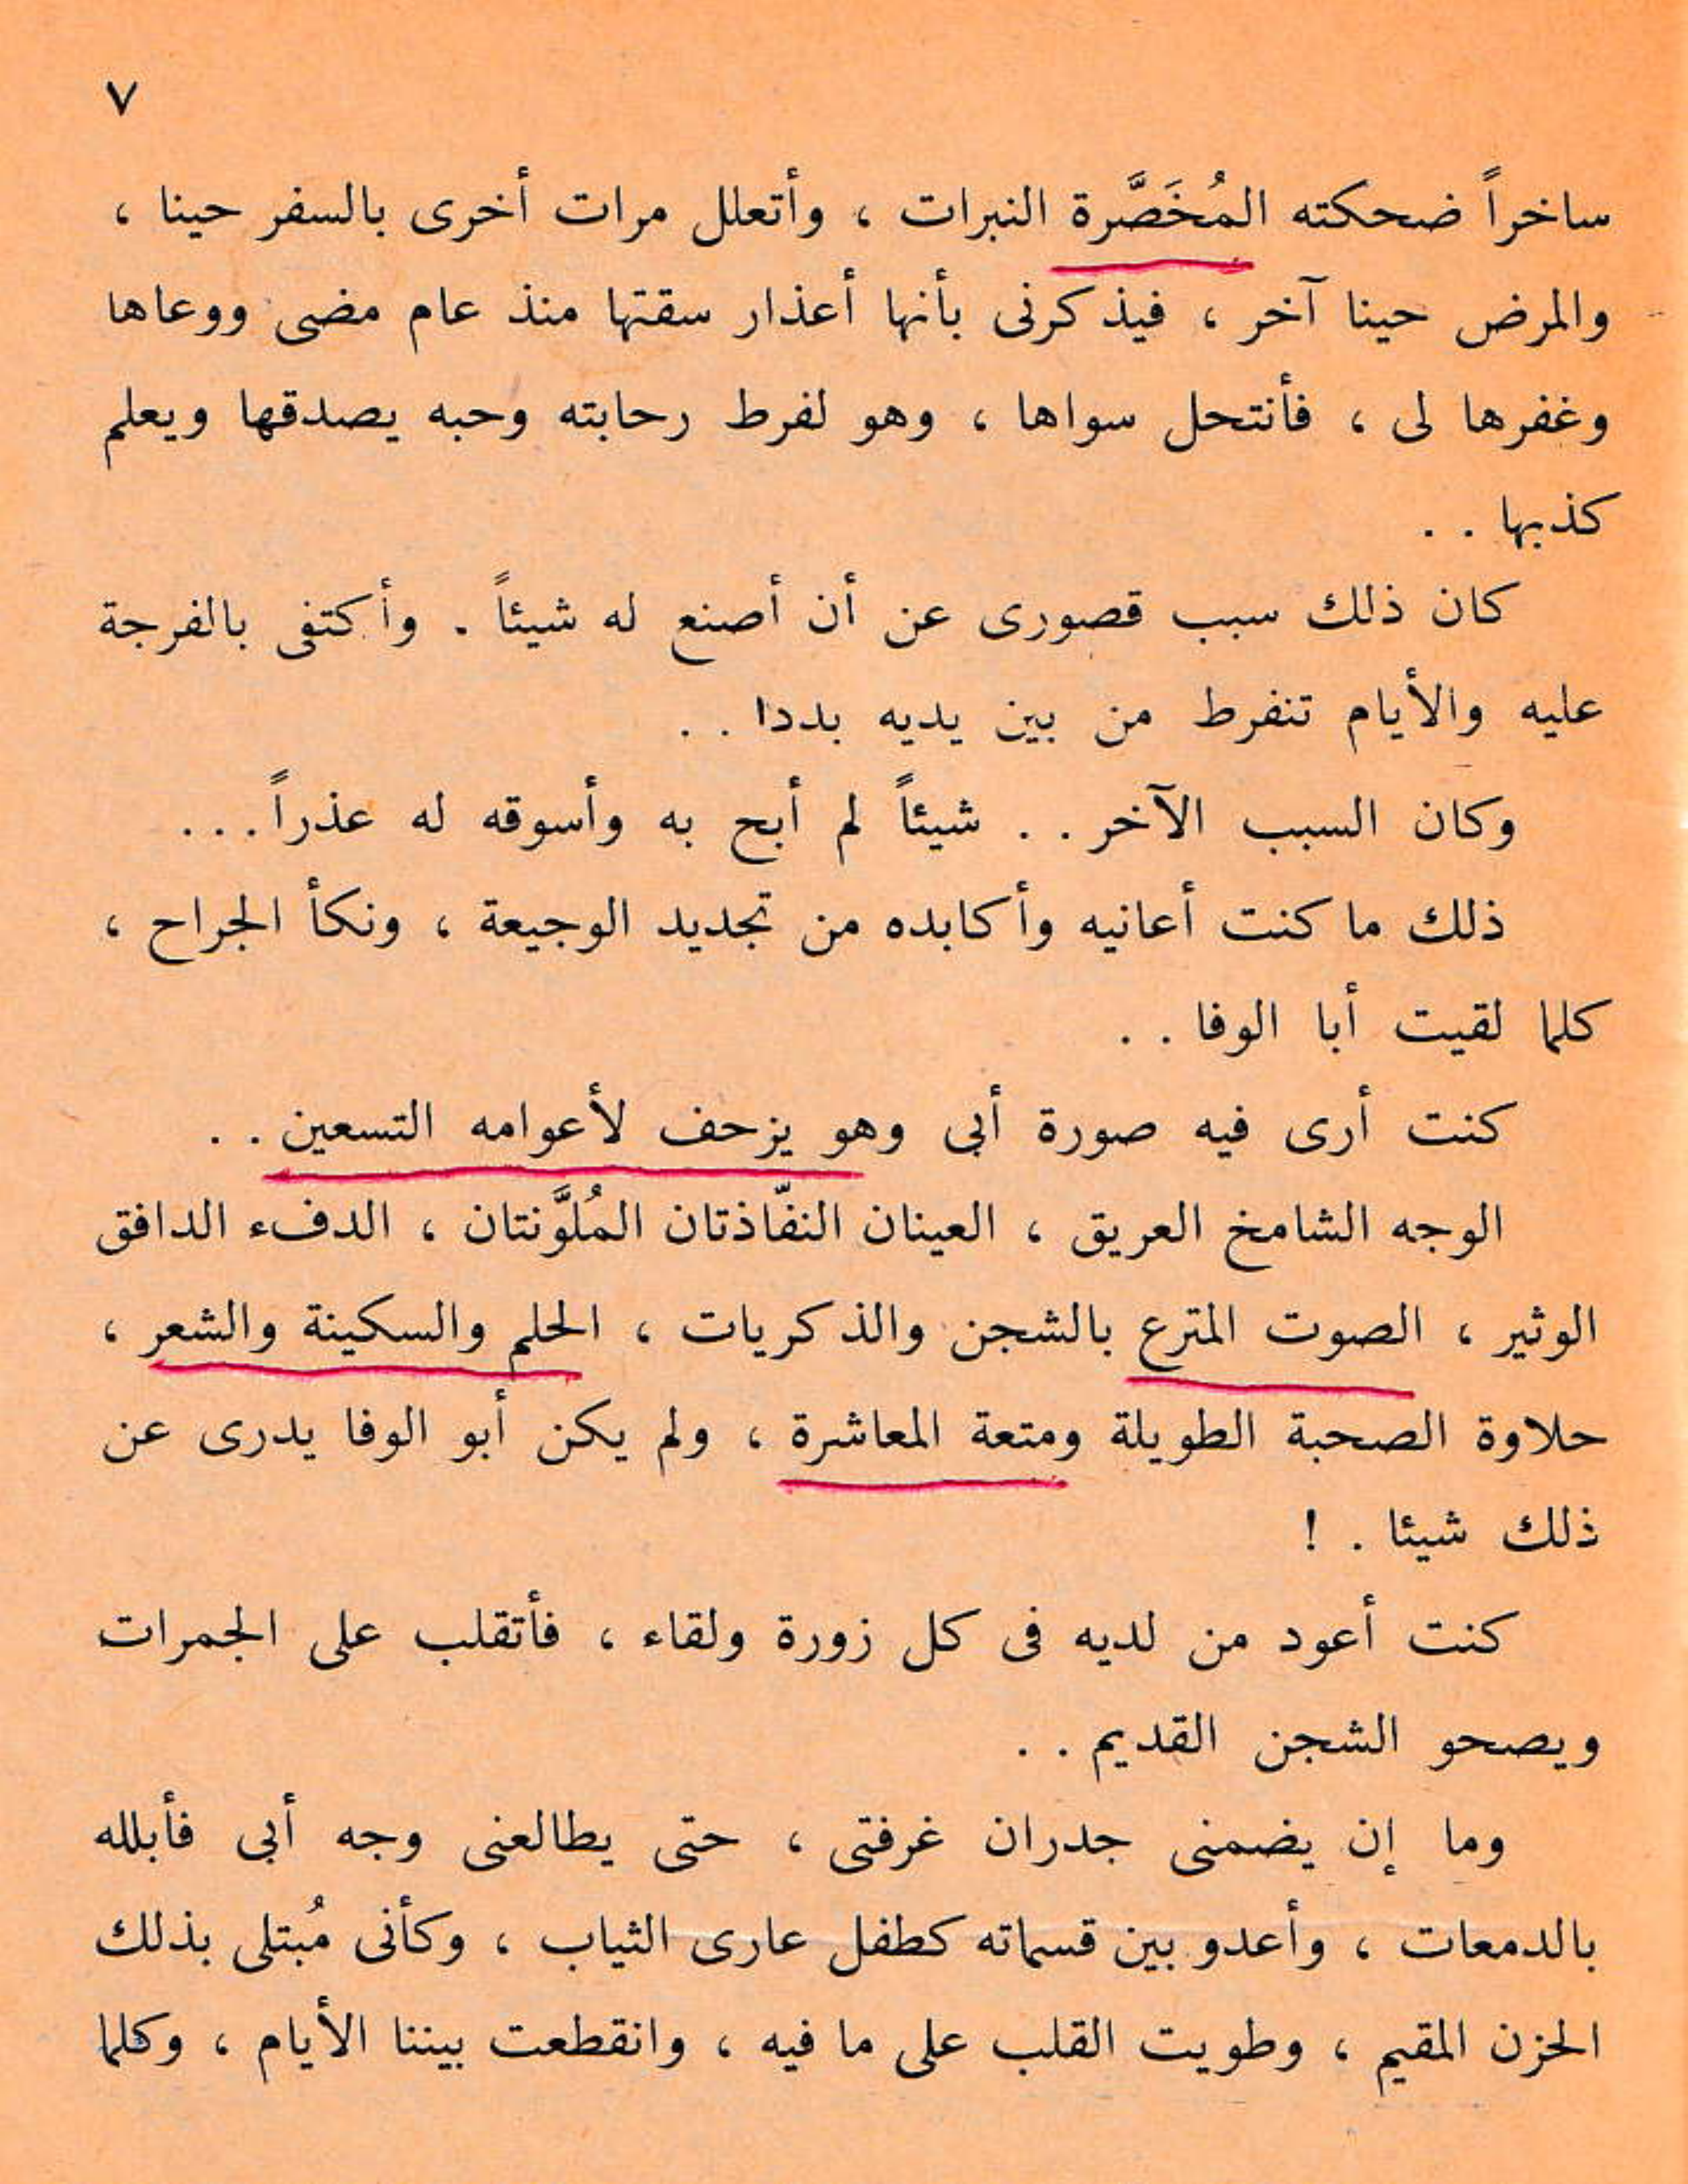 ٧
ساخراً ضحكته المُخَصَّرة النبرات ، وأتعلل مرات أخرى بالسفر حينا ،
والمرض حينا آخر ، فيذكرنى بأنها أعذار سقتها منذ عام مضى ووعاها
وغفرها لى ، فأنتحل سواها ، وهو لفرط رحابته وحبه يصدقها ويعلم
كذبها . .
كان ذلك سبب قصورى عن أن أصنع له شيئاً . وأكتفى بالفرجة
عليه والأيام تنفرط من بين يديه بددا . .
وكان السبب الآخر . . شيئاً لم أبح به وأسوقه له عذراً . . .
ذلك ما كنت أعانيه وأكابده من تجديد الوجيعة ، ونكأ الجراح ،
كلما لقيت أبا الوفا . .
كنت أرى فيه صورة أبى وهو يزحف لأعوامه التسعين . .
الوجه الشامخ العريق ، العينان النفّاذتان المُلوَّنتان ، الدفء الدافق
الوثير ، الصوت المترع بالشجن والذكريات ، الحلم والسكينة والشعر ،
حلاوة الصحبة الطويلة ومتعة المعاشرة ، ولم يكن أبو الوفا يدرى عن
ذلك شيئا . !
كنت أعود من لديه فى كل زورة ولقاء ، فأتقلب على الجمرات
ويصحو الشجن القديم . .
وما إن يضمنى جدران غرفتى ، حتى يطالعنى وجه أبى فأبلله
بالدمعات ، وأعدو بين قسماته كطفل عارى الثياب ، وكأنى مُبتلى بذلك
الحزن المقيم ، وطويت القلب على ما فيه ، وانقطعت بيننا الأيام ، وكلما